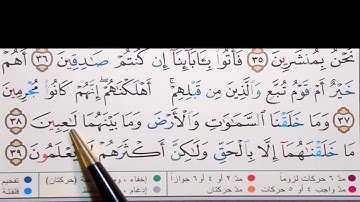 نَحْنُ بِمُنشَرِينَ ٣٥ فَأْتُوا۟ بِـَٔابَآئِنَآ إِن كُنتُمْ صَـٰدِقِينَ ٣٦ أَهُمْ
خَيْرٌ أَمْ قَوْمُ تُبَّعٍ وَٱلَّذِينَ مِن قَبْلِهِمْ ۚ أَهْلَكْنَـٰهُمْ ۖ إِنَّهُمْ كَانُوا۟ مُجْرِمِينَ
٣٧ وَمَا خَلَقْنَا ٱلسَّمَـٰوَٰتِ وَٱلْأَرْضَ وَمَا بَيْنَهُمَا لَـٰعِبِينَ ٣٨
مَا خَلَقْنَـٰهُمَآ إِلَّا بِٱلْحَقِّ وَلَـٰكِنَّ أَكْثَرَهُمْ لَا يَعْلَمُونَ ٣٩
مدّ ٦ حركات لزوماً مدّ ٢ أو ٤ أو ٦ جوازاً إخفاء (حركتان) تفخيم
مدّ واجب ٤ أو ٥ حركات مدّ حركتان إدغام قلقلة